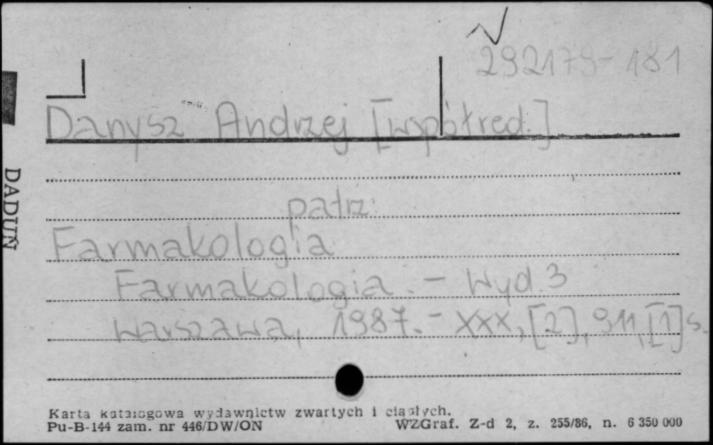 292179-181
Danysz Andrzej [współred.]
patrz:
Farmakologia
Farmakologia. - Wyd. 3
Warszawa, 1987. - XXX, [2], 911, [1] s.
DADUŃ
Karta katalogowa wydawnictw zwartych i ciągłych.
Pu-B-144 zam. nr 446/DW/ON WZGraf. Z-d 2, z. 255/86, n. 6 350 000